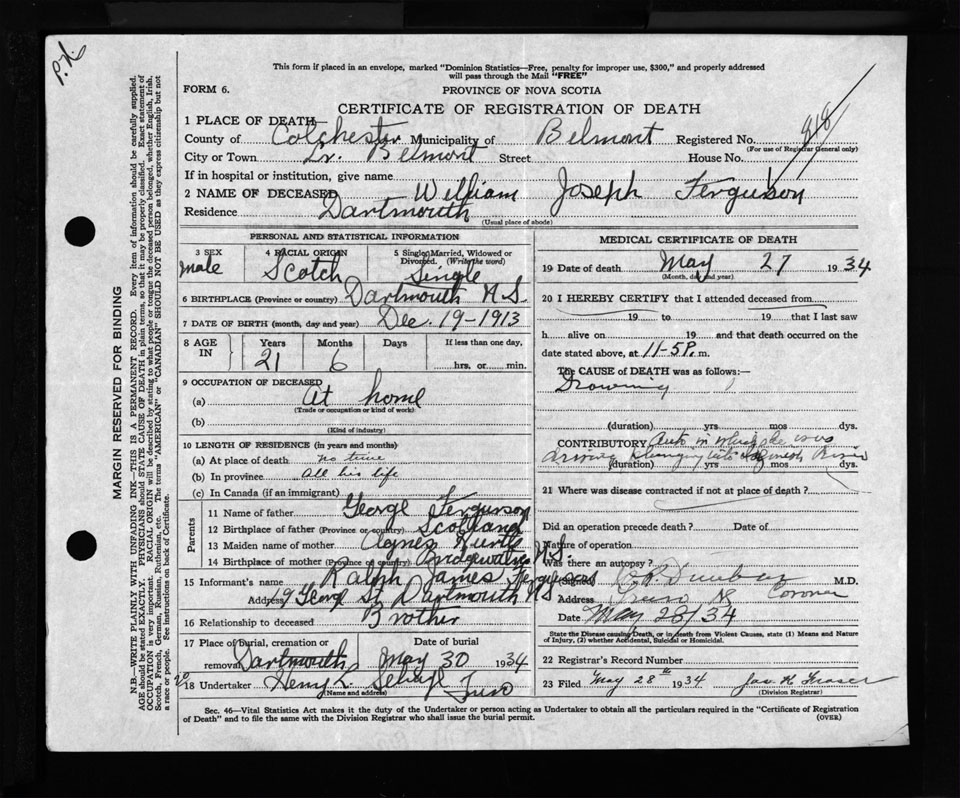 P.K.
This form if placed in an envelope, marked "Dominion Statistics—Free, penalty for improper use, $300," and properly addressed
will pass through the Mail "FREE"
FORM 6.
PROVINCE OF NOVA SCOTIA
CERTIFICATE OF REGISTRATION OF DEATH
1 PLACE OF DEATH—
County of Colchester Municipality of Belmont Registered No. 818
(For use of Registrar General only)
City or Town Lr. Belmont Street House No.
If in hospital or institution, give name
2 NAME OF DECEASED William Joseph Ferguson
Residence Dartmouth
(Usual place of abode)
PERSONAL AND STATISTICAL INFORMATION
3 SEX male
4 RACIAL ORIGIN Scotch
5 Single, Married, Widowed or Divorced. (Write the word) Single
6 BIRTHPLACE (Province or country) Dartmouth N.S.
7 DATE OF BIRTH (month, day and year) Dec. 19-1913
8 AGE IN Years 21 Months 6 Days If less than one day, hrs. or min.
9 OCCUPATION OF DECEASED
(a) At home
(Trade or occupation or kind of work)
(b)
(Kind of industry)
10 LENGTH OF RESIDENCE (in years and months)
(a) At place of death no time
(b) In province All his life
(c) In Canada (if an immigrant)
Parents
11 Name of father George Ferguson
12 Birthplace of father (Province or country) Scotland
13 Maiden name of mother Agnes
14 Birthplace of mother (Province or country) Bridgewater N.S.
15 Informant's name Ralph James Ferguson
Address 19 George St Dartmouth NS
16 Relationship to deceased Brother
17 Place of Burial, cremation or removal Dartmouth
Date of burial May 30 1934
18 Undertaker Henry L. Truro
(Name and address)
MEDICAL CERTIFICATE OF DEATH
19 Date of death May 27 1934
(Month, day and year)
20 I HEREBY CERTIFY that I attended deceased from
19 to 19 that I last saw
h alive on 19 and that death occurred on the
date stated above, at 11-5 P. m.
The CAUSE of DEATH was as follows:—
Drowning
(duration) yrs mos dys.
CONTRIBUTORY Auto in which he was
driving plunging into River
(duration) yrs mos dys.
21 Where was disease contracted if not at place of death?
Did an operation precede death? Date of
Nature of operation
Was there an autopsy?
(Signed) Dunbar M.D.
Address Truro NS Coroner
Date May 28/34
State the Disease causing Death, or in death from Violent Causes, state (1) Means and Nature
of Injury, (2) whether Accidental, Suicidal or Homicidal.
22 Registrar's Record Number
23 Filed May 28th 1934 Jas. H. Fraser
(Division Registrar)
Sec. 46—Vital Statistics Act makes it the duty of the Undertaker or person acting as Undertaker to obtain all the particulars required in the "Certificate of Registration
of Death" and to file the same with the Division Registrar who shall issue the burial permit.
(OVER)
MARGIN RESERVED FOR BINDING
N.B.—WRITE PLAINLY WITH UNFADING INK—THIS IS A PERMANENT RECORD. Every item of information should be carefully supplied.
AGE should be stated EXACTLY. PHYSICIANS should STATE CAUSE OF DEATH in plain terms, so that it may be properly classified. Exact statement of
OCCUPATION is very important. RACIAL ORIGIN will be described by stating to what people or tongue the deceased person belonged, whether English, Irish,
Scotch, French, German, Russian, Ruthenian, etc. The terms "AMERICAN" or "CANADIAN" SHOULD NOT BE USED as they express citizenship but not
a race or people. See instructions on back of Certificate.